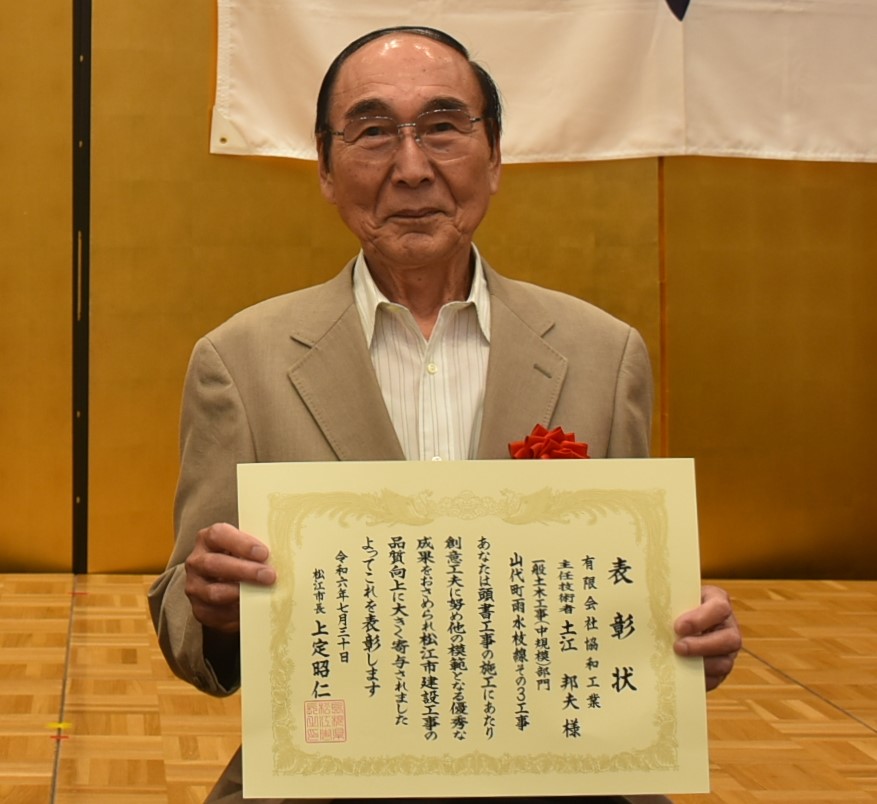 表彰状
有限会社協和工業
主任技術者 土江 邦夫 様
一般土木工事(中規模)部門
山代町雨水枝線その3工事
あなたは頭書工事の施工にあたり
創意工夫に努め他の模範となる優秀な
成果をおさめられ松江市建設工事の
品質向上に大きく寄与されました
よってこれを表彰します
令和六年七月三十日
松江市長 上定昭仁